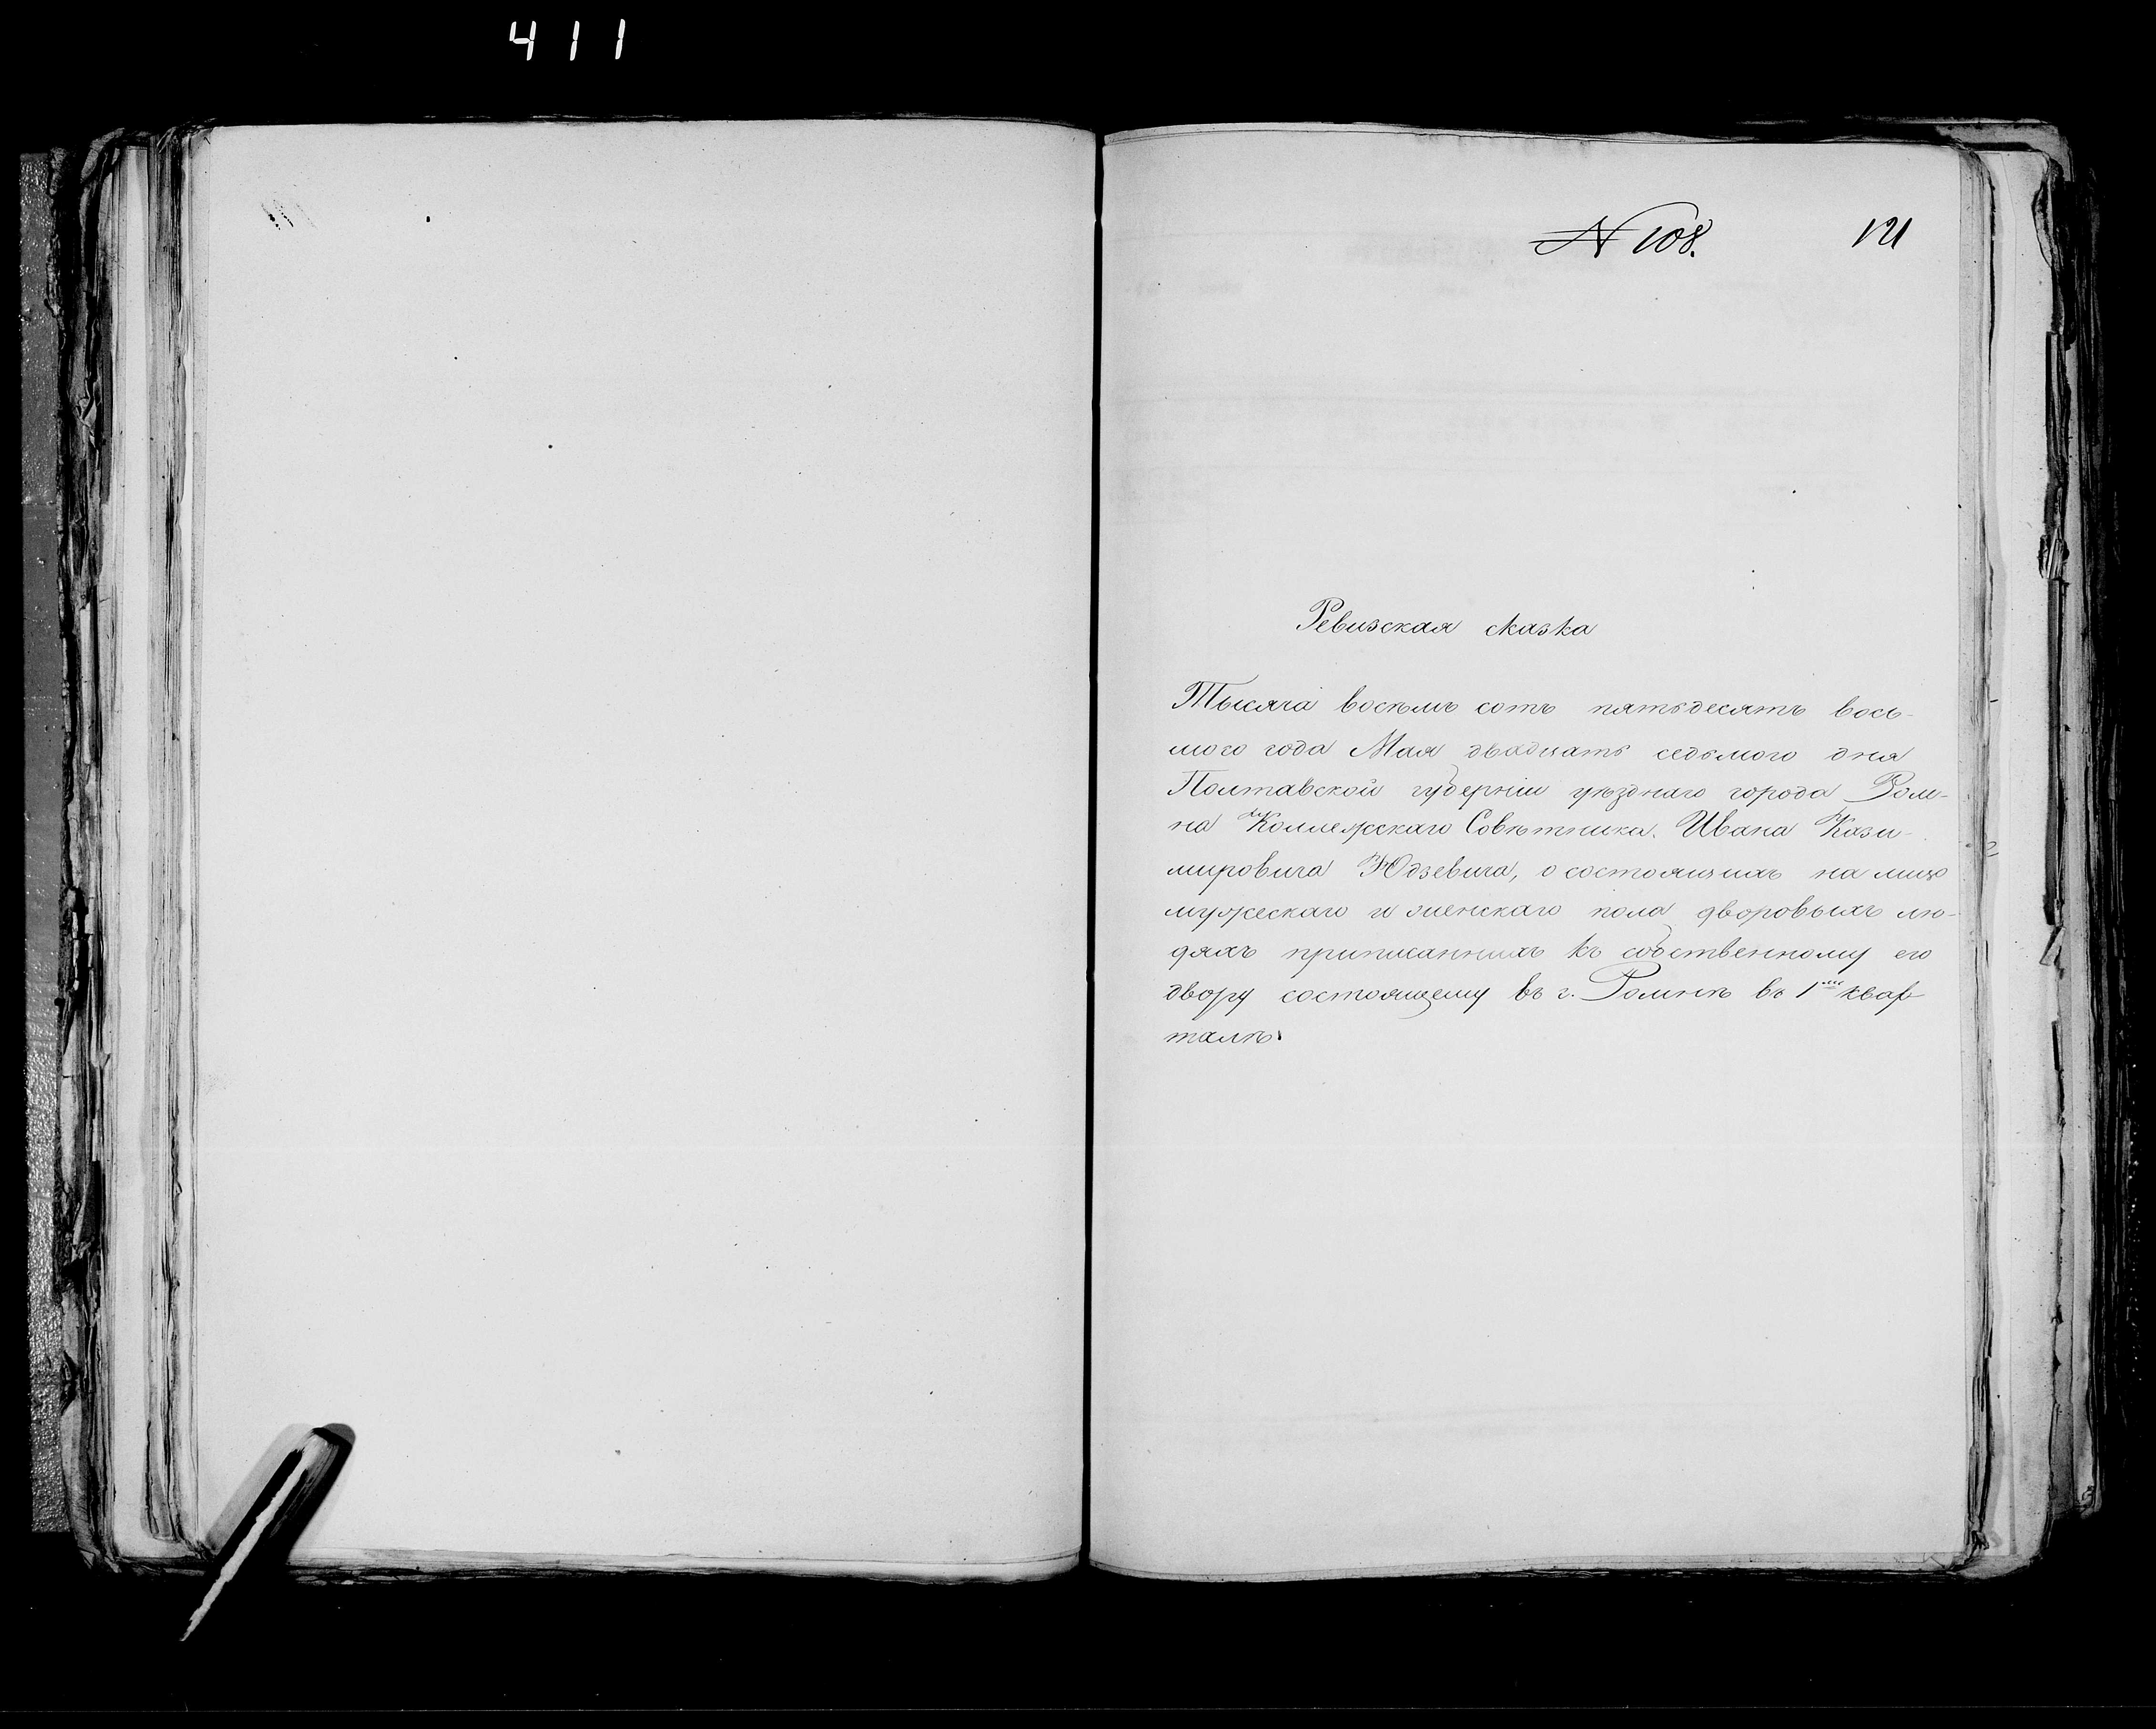 411
№ 108. 121
Ревизская сказка
Тысяча восемь сотъ пятьдесятъ вось-
мого года Мая двадцать седьмого дня
Полтавской губерніи уѣзднаго города Ром-
на Коллежскаго Совѣтника Ивана Кази-
мировича Юдзевича, о состоящихъ на лицо
мужескаго и женскаго пола дворовыхъ лю-
дяхъ приписанныхъ къ собственному его
двору состоящему въ г. Ромнѣ въ 1мъ квар-
талѣ.